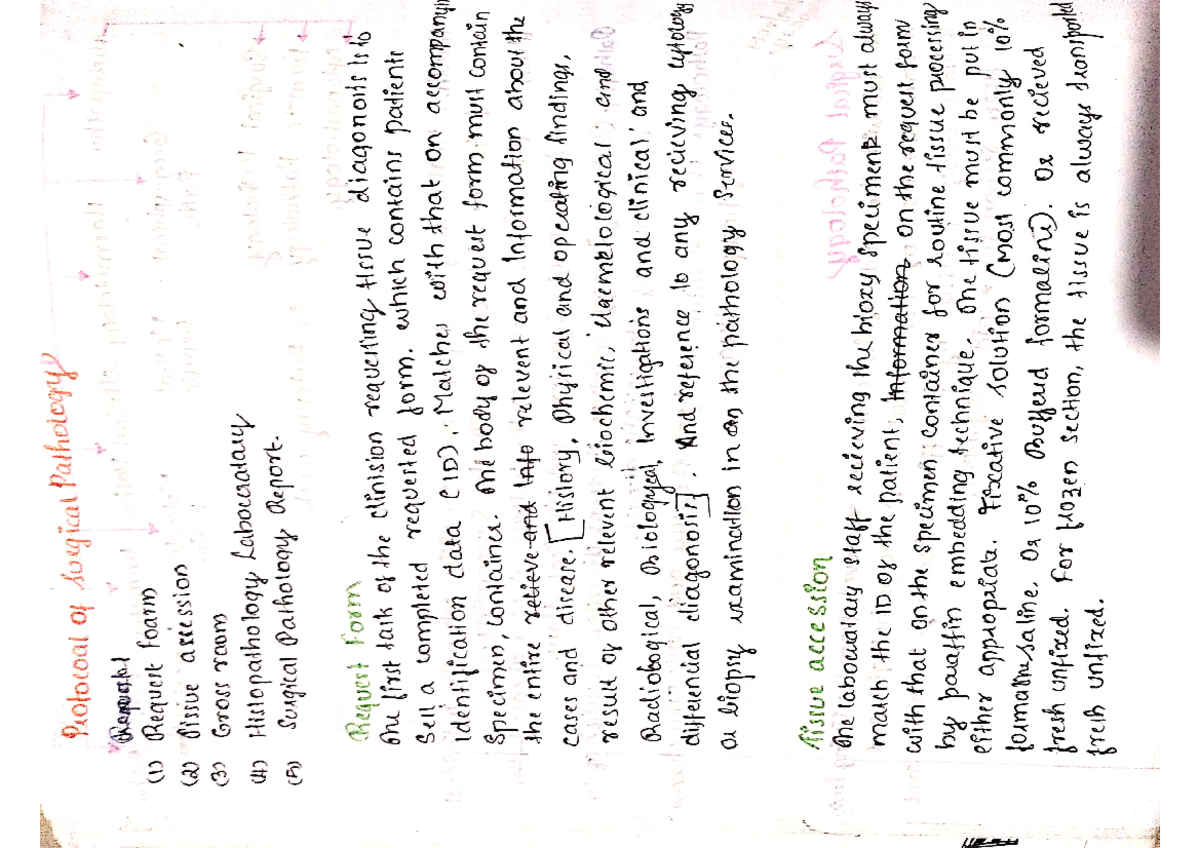 Protocoal of Surgical Pathology
(1) Request Foarm
(2) Tissue accession
(3) Gross room
(4) Histopathology Labouratary
(5) Surgical Pathology Report.
Request Form
The first task of the clinision requesting tissue diagonosis is to
Sell a completed requested form. which contains patients
Identification data (ID), Matches with that on accompanyin
Specimen, Container. The body of the request form must contain
the entire retieve and Info relevent and Information about the
cases and disease. [History, Physical and operating findings,
result of other relevent biochemic, Haemetological and
Radiobogical, Investigations and clinical and
differencial diagonosis]. And reference to any recieving cytology
or biopsy examination in on the pathology services.
Tissue accession
The labouratary staff recieving the bioxy speciments must always
match the ID of the patient, Information on the request form
with that on the specimen container for routine tissue processing
by paraffin embedding technique. The tissue must be put in
either appropriate. Fixative solution (most commonly 10%
formaline saline. Or 10% Bufferd formaline). Or recieved
fresh unfixed. For frozen section, the tissue is always transported
fresh unfixed.